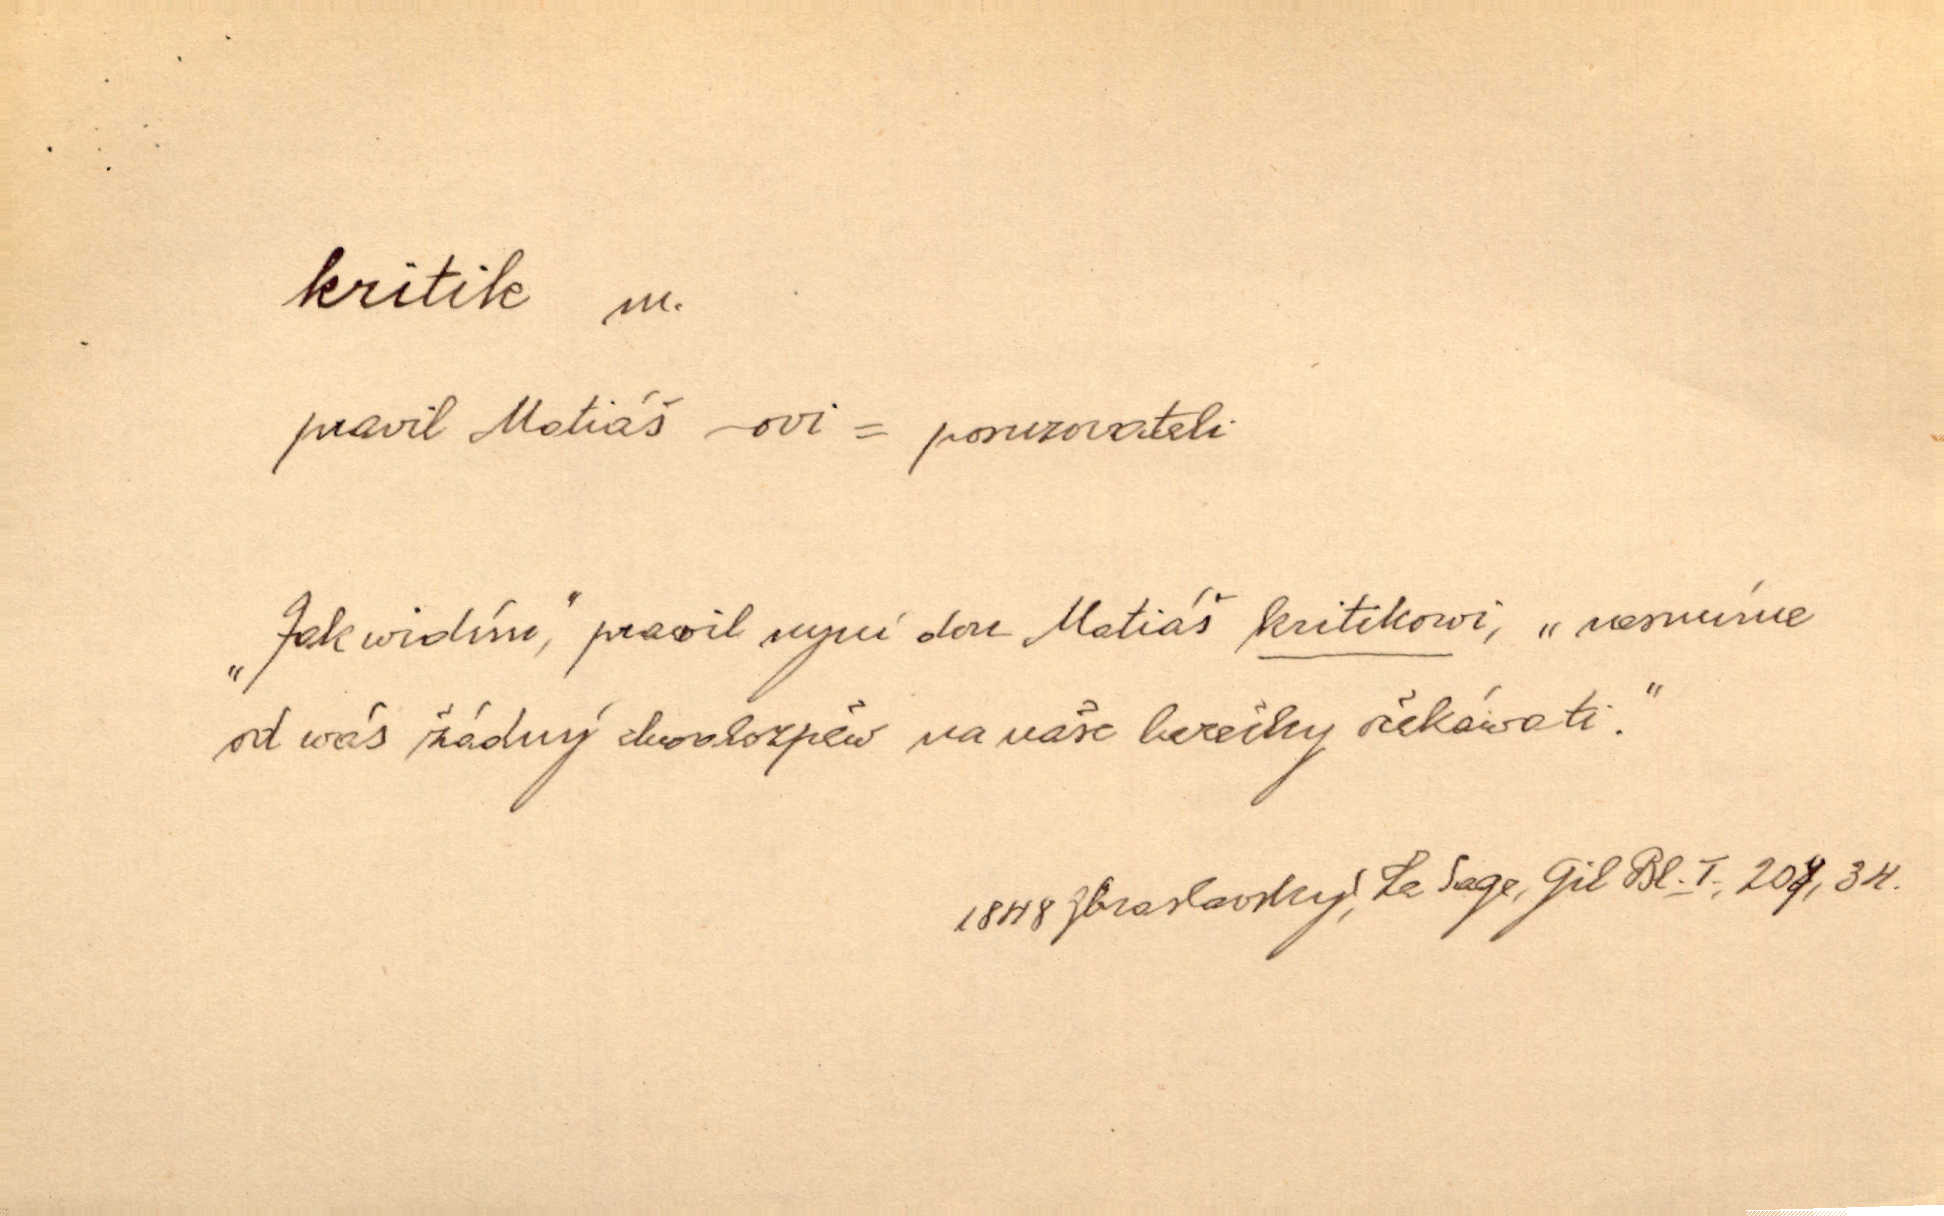 kritik m.
pravil Matiáš ~ovi = posuzovateli
„Jak widím," pravil nyní don Matiáš kritikowi, „nesmíme
od wás žádný chwalozpěw na naše herečky očekáwati."
1848 Zbraslavský, Le Sage, Gil Bl. I., 207, 34.